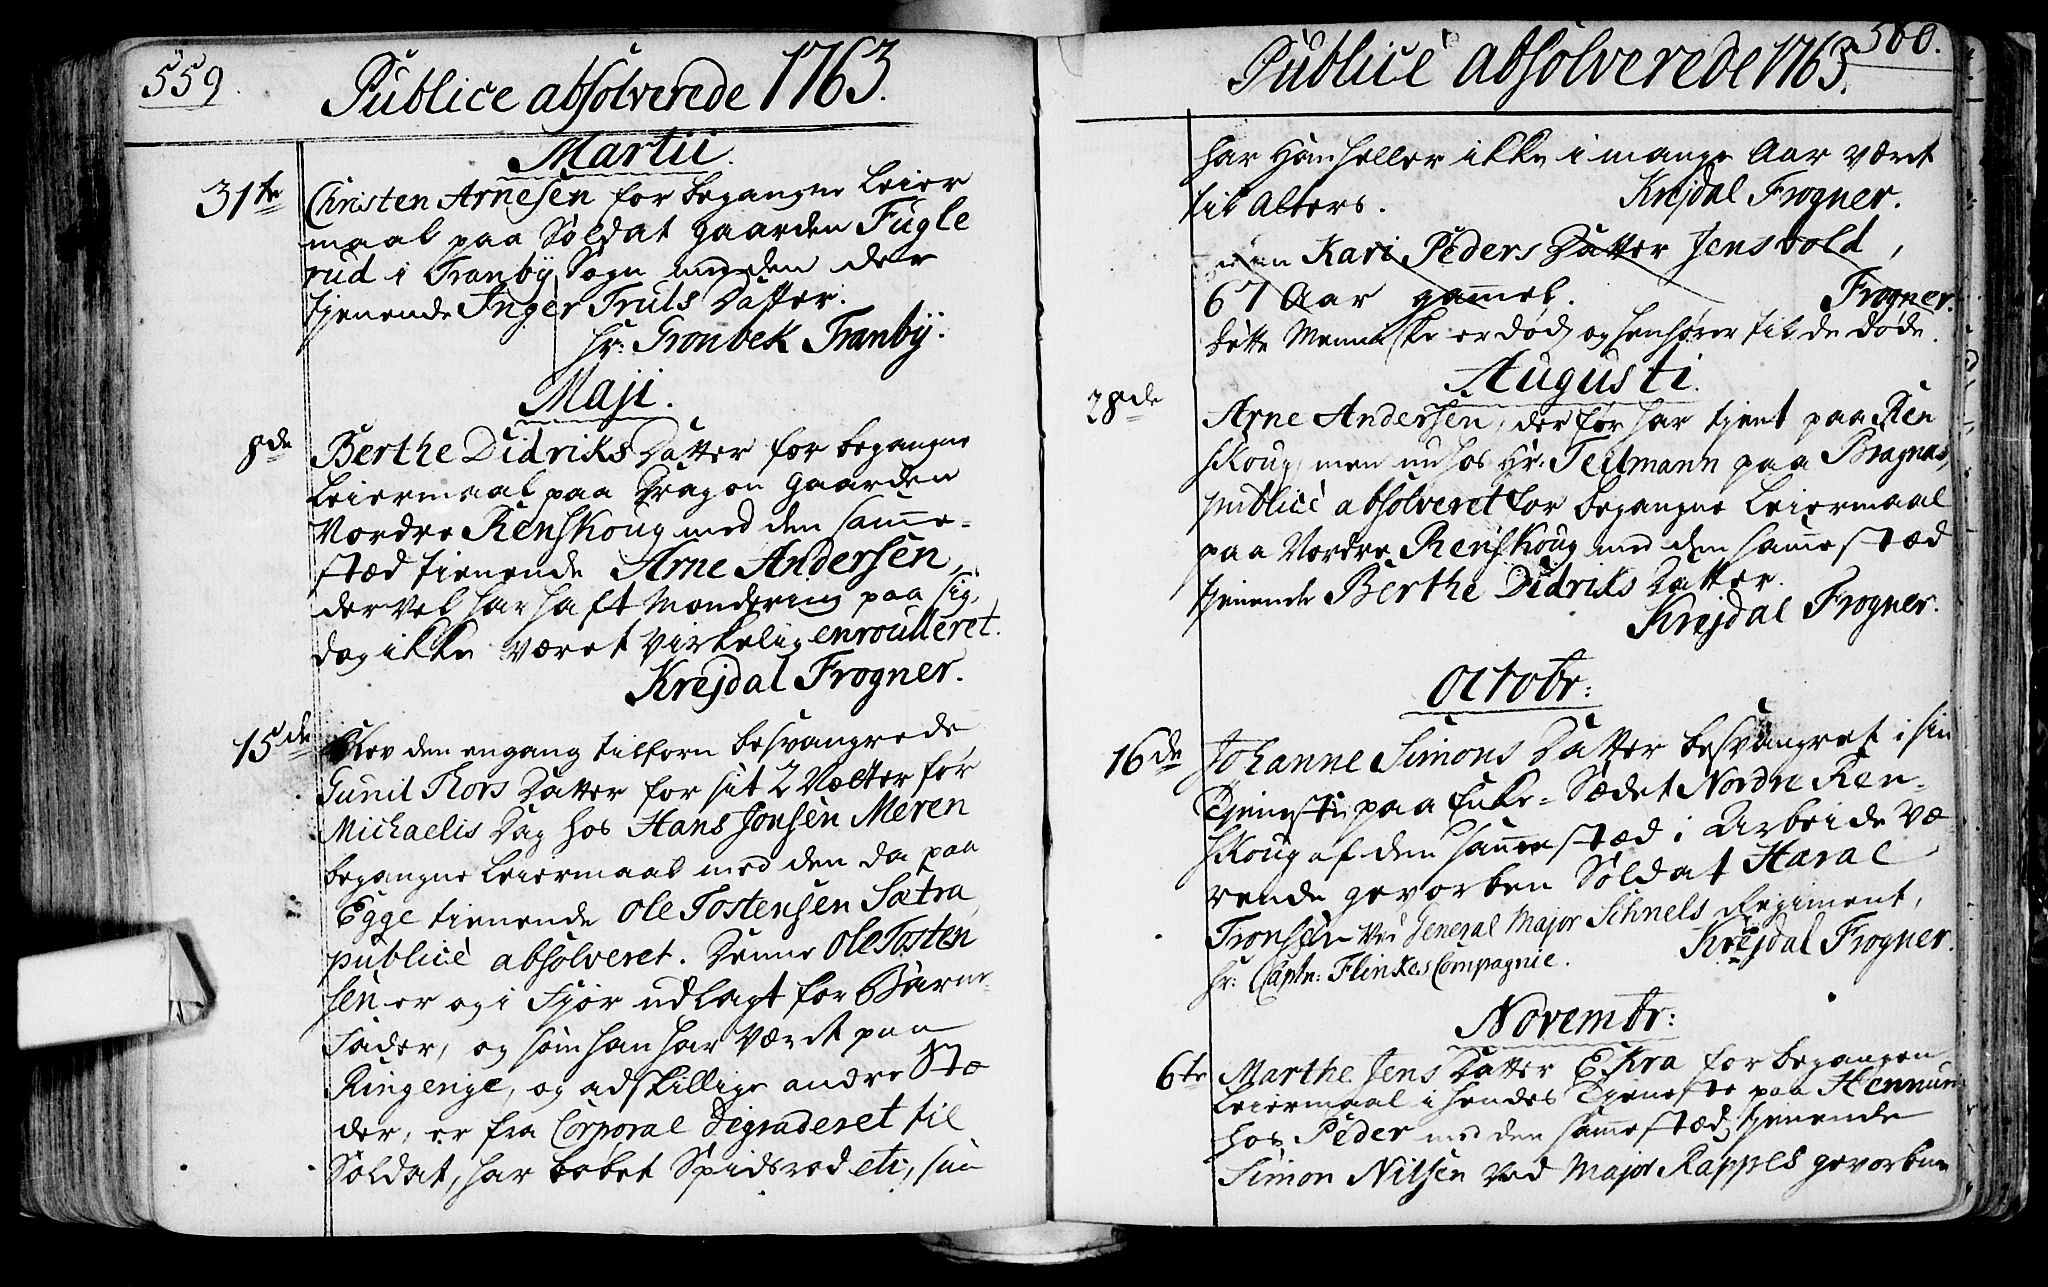 559.
Publice absolverede 1763.
Martii.
31te Christen Arnesen for begangne Leier
maal paa Soldat Gaarden Fugle
rud i Tranby Sogn med den der
tjenende Inger Truls Datter.
Hr: Gronbek Tranby.
Maji.
8de Berthe Didriks Datter for begangne
Leiermaal paa Dragon Gaarden
Nordre Renskoug med den samme-
stæd tienende Arne Andersen,
der vel har haft Mondering paa sig,
dog ikke været virkelig enroulleret.
Krejdal Frogner.
15de blev den engang tilforn besvangrede
Gunil Thors Datter for sit 2 Nætter for
Michaelis Dag hos Hans Jonsen Meren
begangne Leiermaal med den da paa
Egge tienende Ole Tostensen Sætra,
publicè absolveret. Denne Ole Tosten
sen er og i Fjor udlagt for Barne-
Fader, og som han har været paa
Ringerige, og adskillige andre Stæ
der, er fra Corporal degraderet til
Soldat, har løbet Spidsrod etc, saa
560.
Publicè absolverede 1763.
har Han heller ikke i mange Aar været
til Alters. Krejdal Frogner.
Kari Peders Datter Jensvold,
67 Aar gammel. Frogner.
Dette Menniske er død, og henhører til de døde.
Augusti.
28de Arne Andersen, der før har tjent paa Ren
skoug, men nu hos Hr. Teilmann paa Bragnæs,
publicè absolveret for begangne Leiermaal
paa Nordre Renskoug med den sammestæd
tjenende Berthe Didriks Datter.
Krejdal Frogner.
Octobr:
16de Johanne Simons Datter besvangret i sin
Tjeneste paa Enke-Sædet Nordre Ren-
skoug af den sammestæd i Arbeide væ-
rende gevorben Soldat Haral
Tronsen ved General Major Schnels Regiment,
Hr: Captn: Flinkes Compagnie. Krejdal Frogner.
Novembr:
6te Marthe Jens Datter Eskra for begangen
Leiermaal i hendes Tjeneste paa Hennum
hos Peder med den sammestæd tjenende
Simon Nilsen ved Major Rappes gevorbne